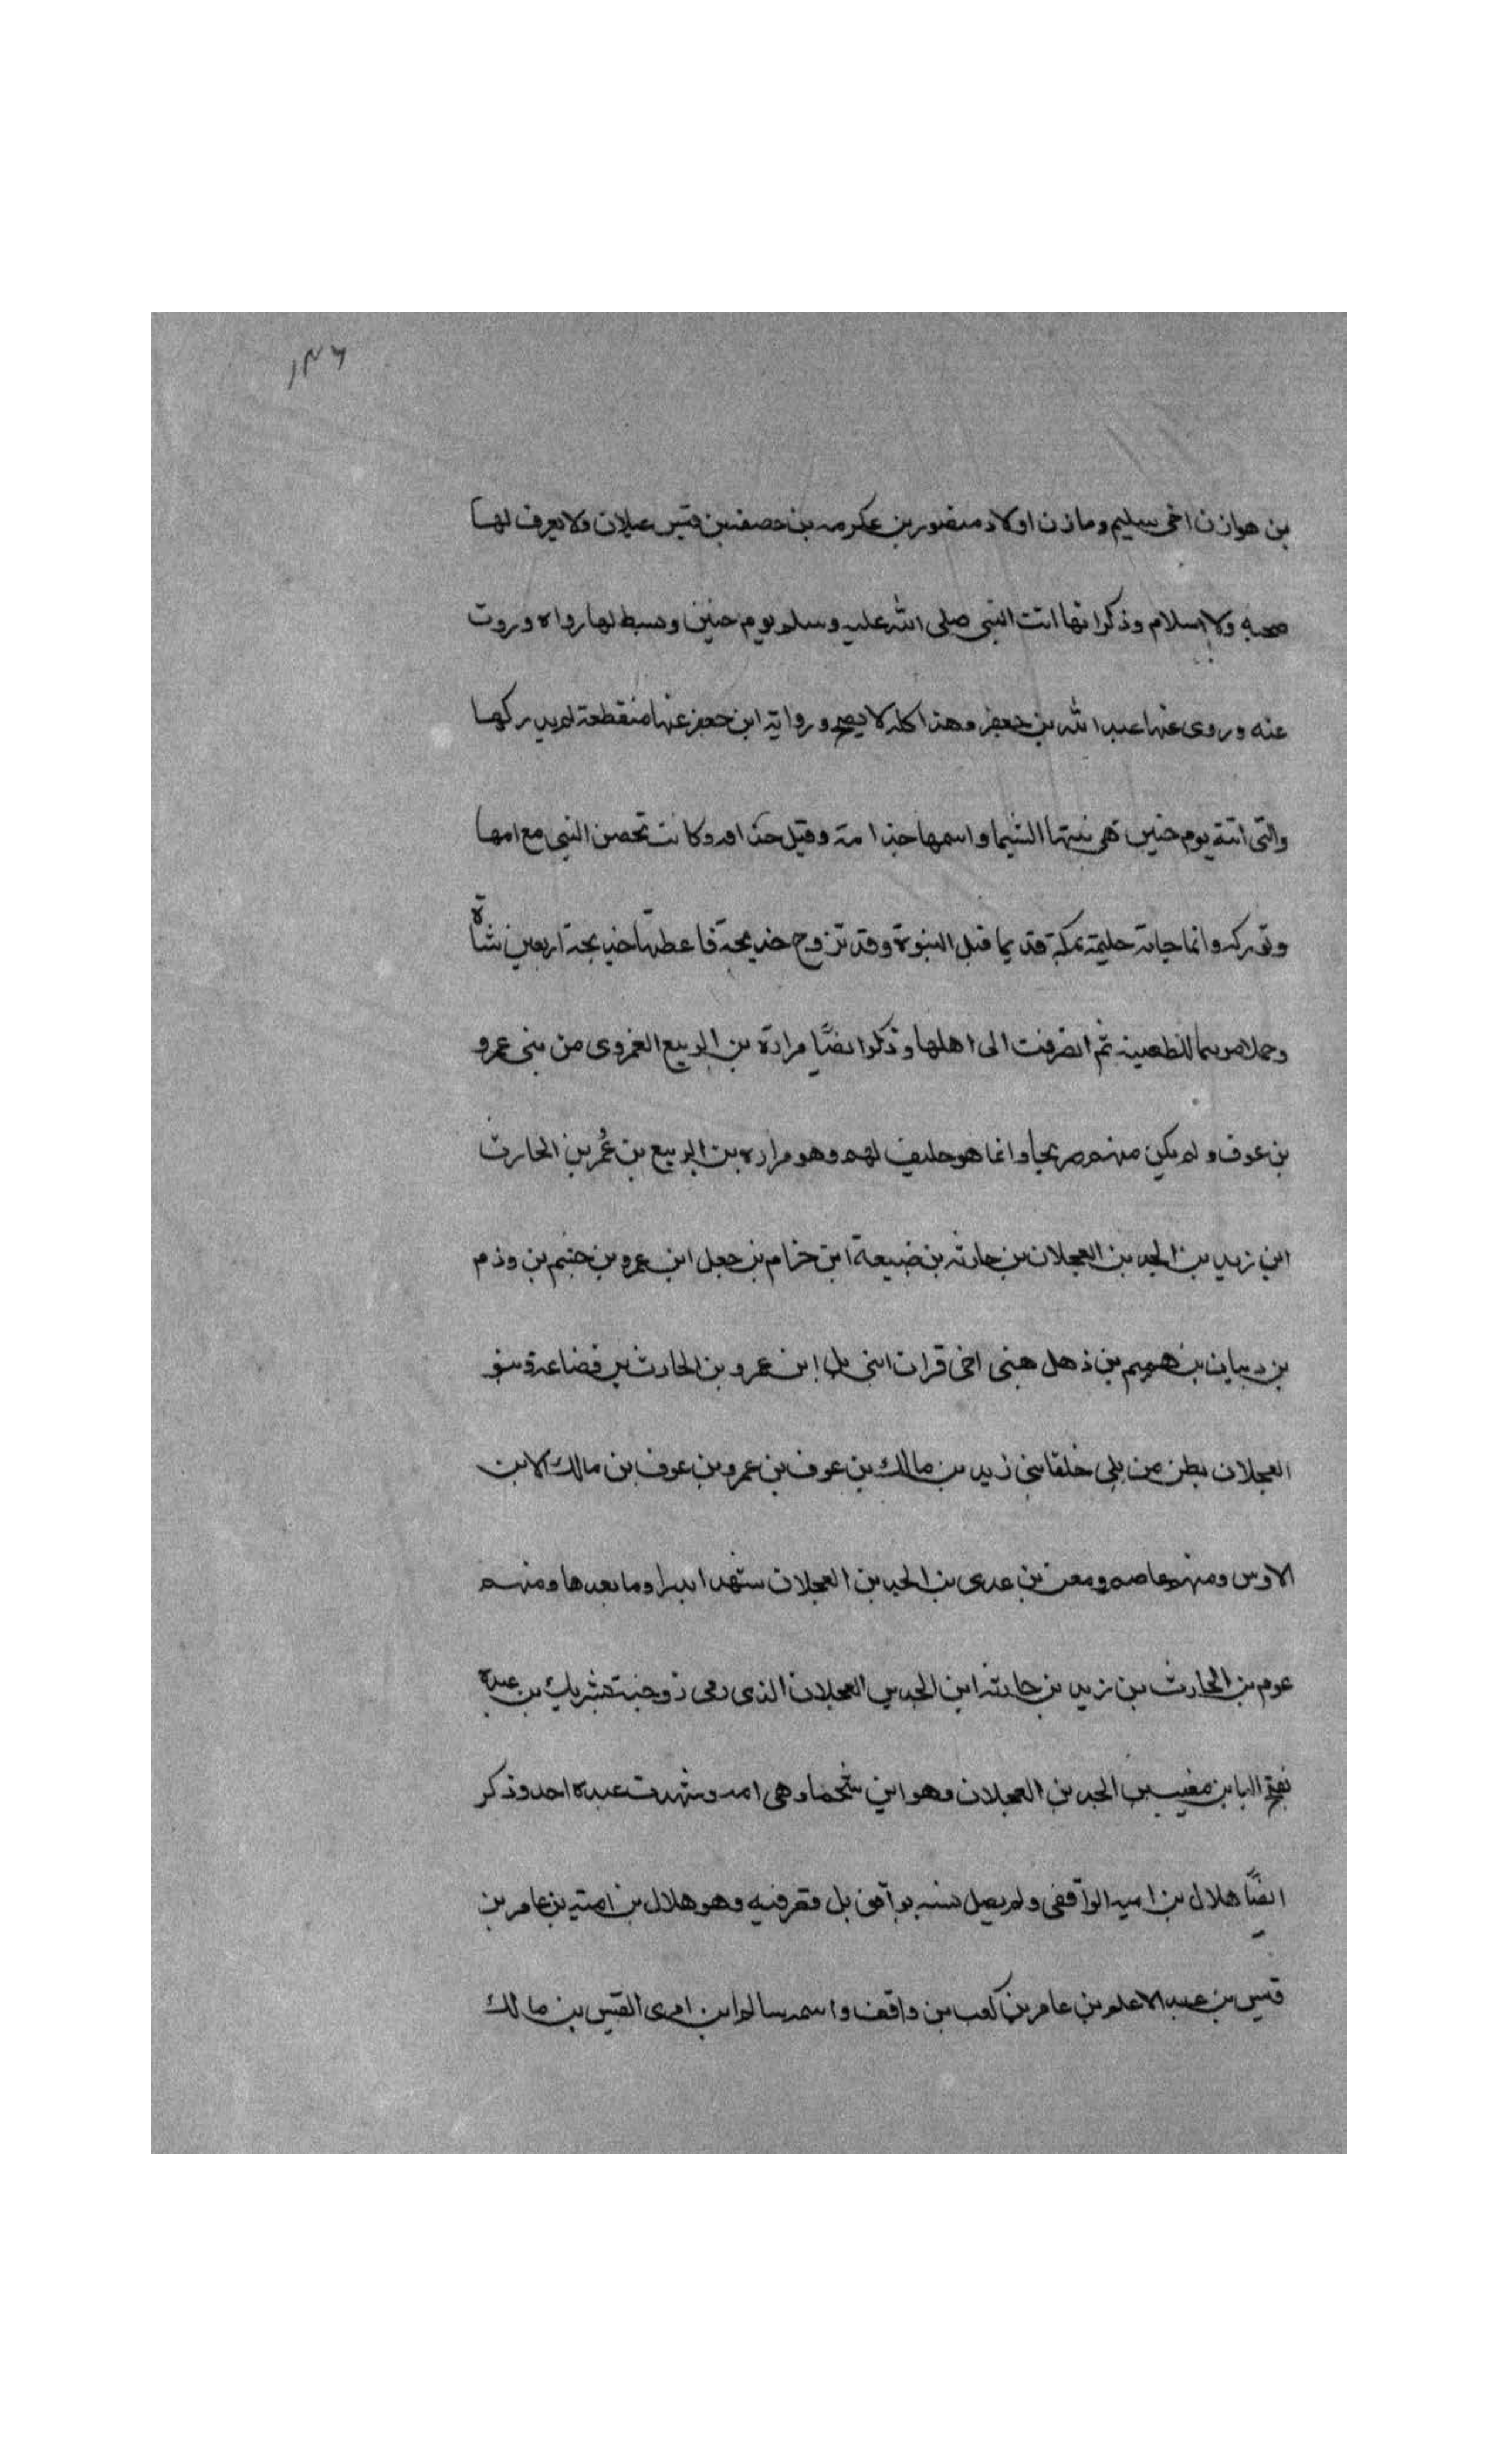 ١٣٦
بن هوازن اخي سليم ومازن اولاد منصور بن عكرمه بن حصفه بن قيس عيلان ولا يعرف لها
صحبه ولا اسلام وذكر انها اتت النبي صلى الله عليه وسلم يوم حنين وبسط لها رداه وروت
عنه وروى عنها عبد الله بن جعفر وهذا كله لا يصح ورواية ابن جعفر عنها منقطعة لم يدركها
والتي اتته يوم حنين هي بنتها الشيما واسمها جذامة وقيل حذافه وكانت تحضن النبي مع امها
وتوركه وانما جاته حليمة بمكة قديما قبل النبوة وقد تزوج خديجة فاعطتها خديجة اربعين شاة
وجملا للظعينه ثم انصرفت الى اهلها وذكر ايضًا مرارة بن الربيع العمروى من بني عمرو
بن عوف ولم يكن منهم صريحا وانما هو حليف لهم وهو مراره بن الربيع بن عُمر بن الحارث
ابن زيد بن الجد بن العجلان بن حارثه بن ضبيعة ابن حزام بن جعل ابن عمرو بن جشم بن وذم
بن دبيان بن هميم بن ذهل هني اخي قران ابني بل ابن عمرو بن الحارث بن قضاعة وبنو
العجلان بطن من بلي حلفا بني زيد بن مالك بن عوف بن عمرو بن عوف بن مالك الابن
الاوس ومنهم عاصم ومعن بن عدى بن الجد بن العجلان شهدا بدرا وما بعدها ومنهم
عوم بن الحارث بن زيد بن حارثه ابن الجد بن العجلان الذى رمى زوجته بشريك بن عبده
بفتح البا بن مغيث بن الجد بن العجلان وهو ابن سحما وهي امه وشهدت عبده احد وذكر
ايضًا هلال بن اميه الواقفي ولم يصل نسبه بواقف بل وهو هلال بن امية بن عامر بن
قيس بن عبد الاعلم بن عامر بن كعب بن واقف واسمه سالم ابن امرى القيس بن مالك